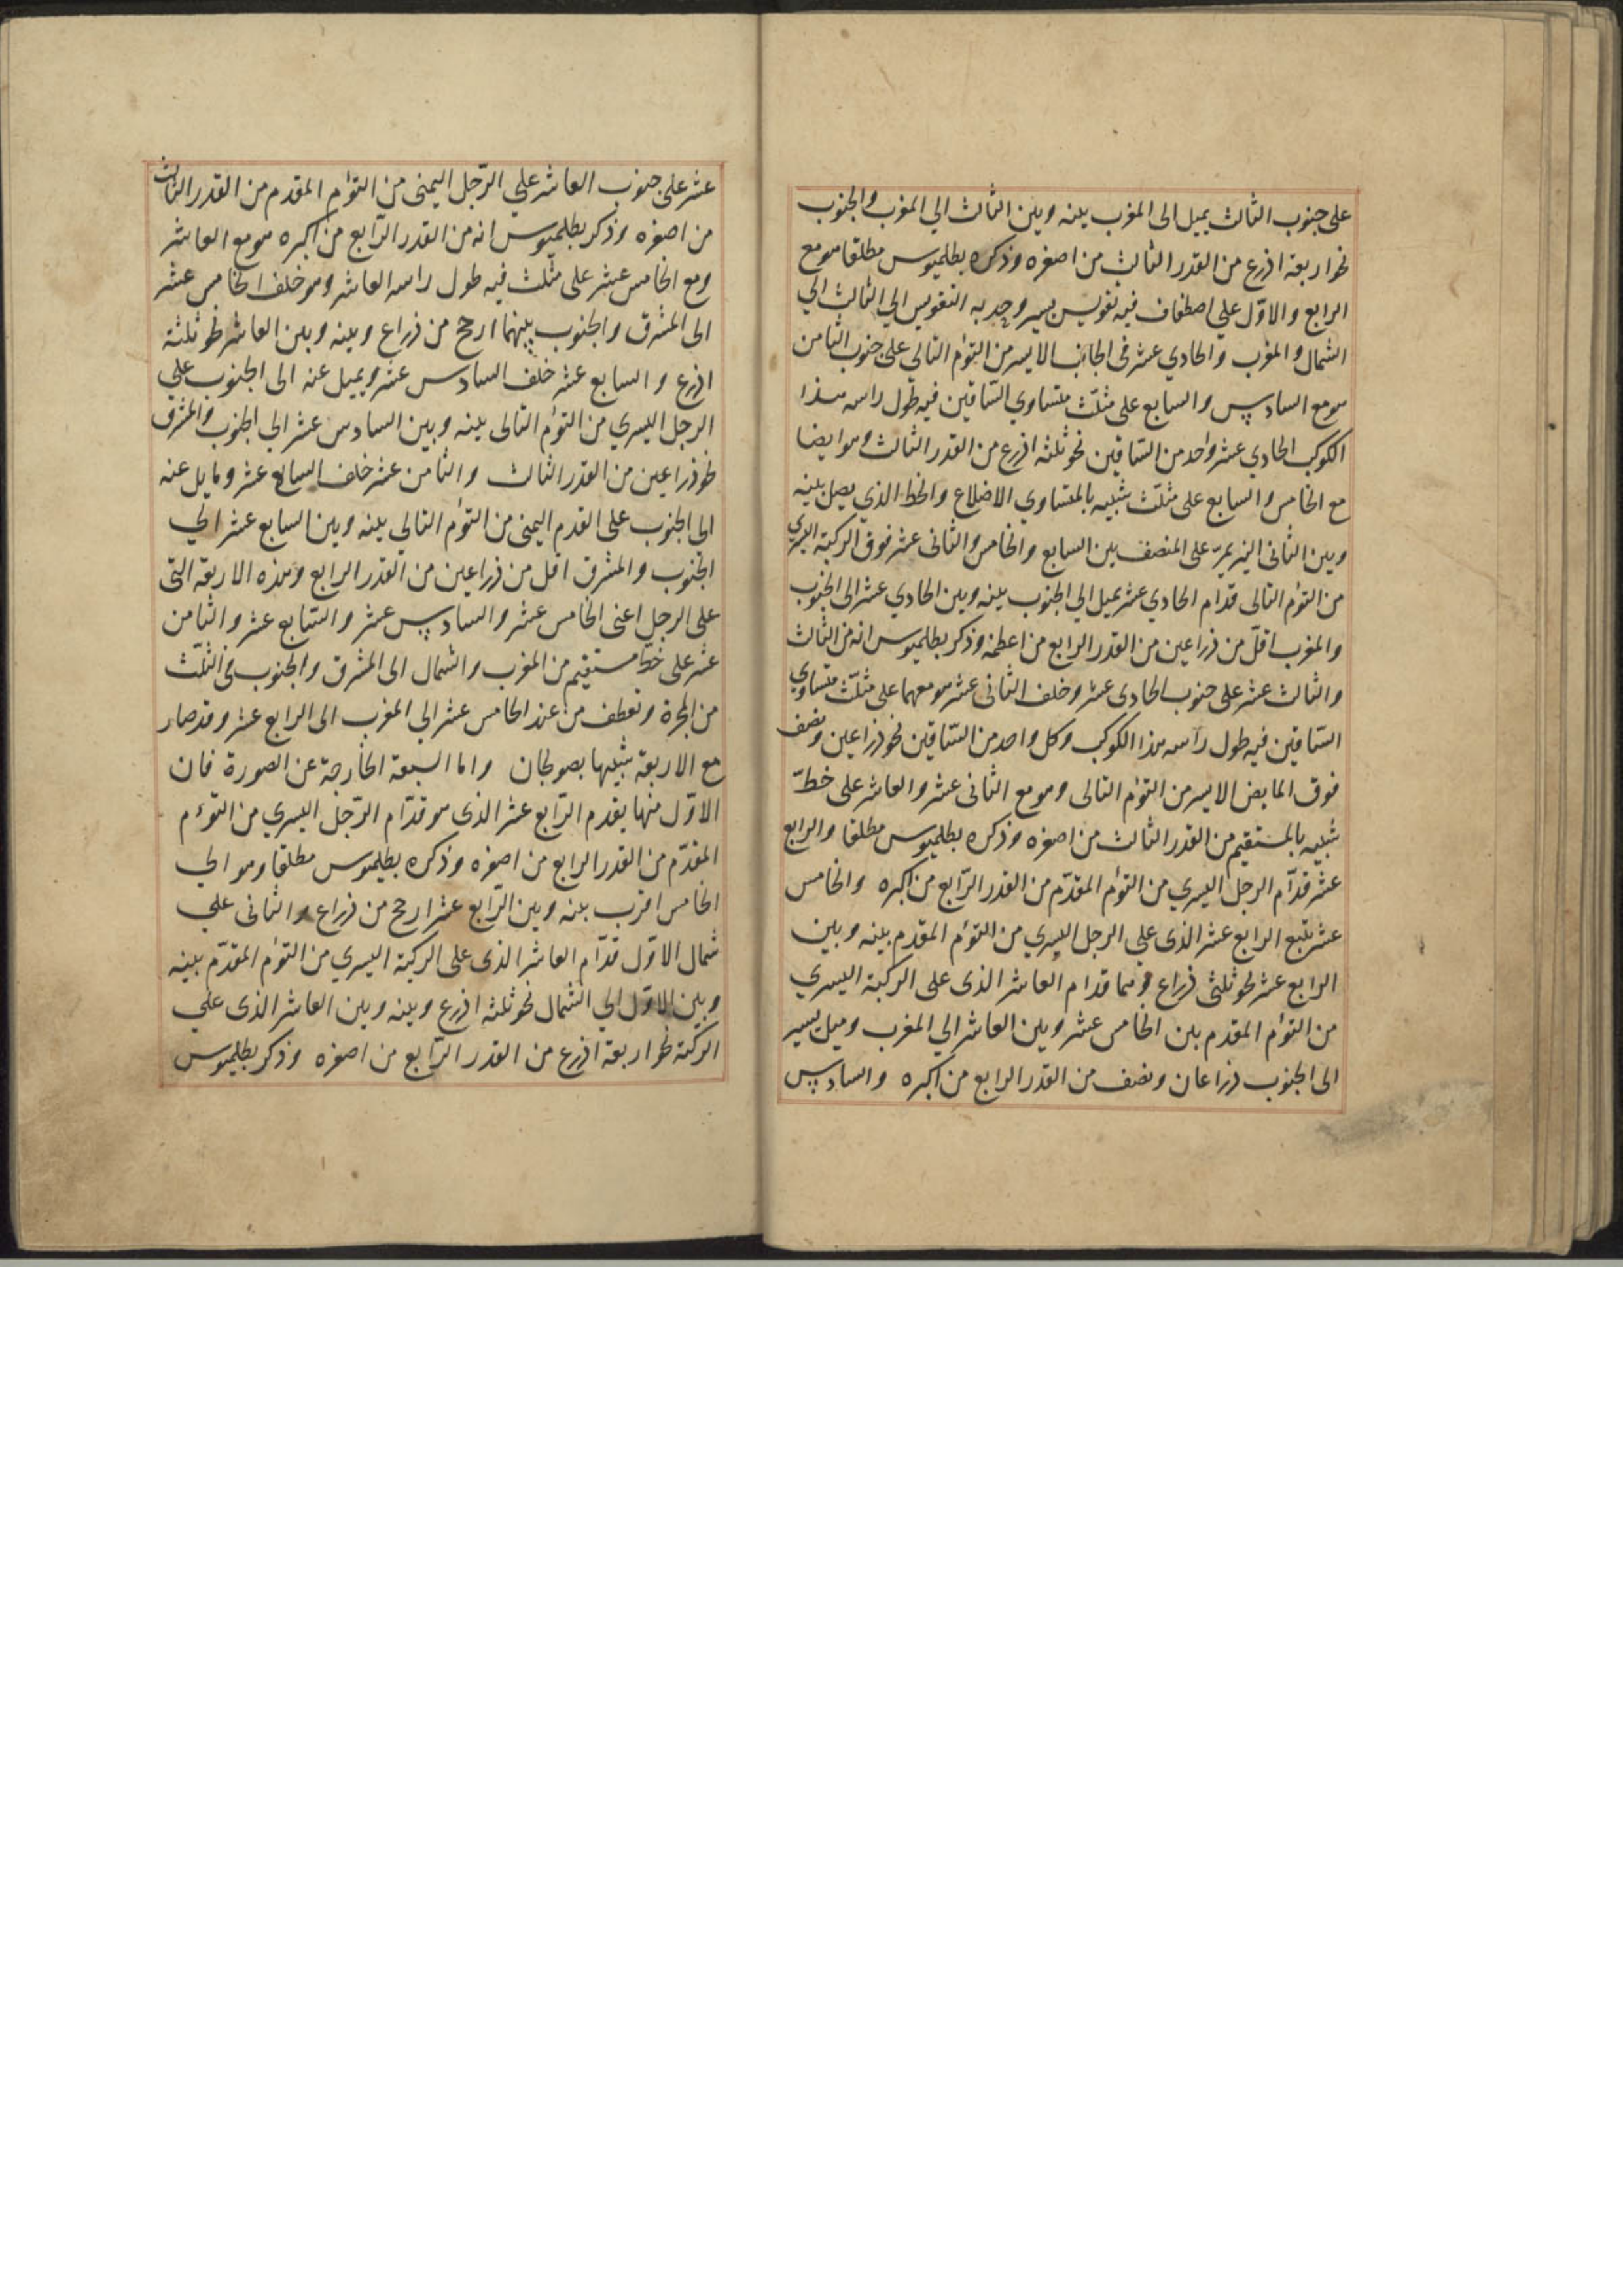 على جنوب الثالث يميل الى المغرب بينه وبين الثالث الي المغرب والجنوب
نحو اربعة اذرع من القدر الثالث من اصغره وذكره بطلميوس مطلقا وهو مع
الرابع والاوّل علي اصطفاف فيه تقويس يسير وحدبه التقويس الي الثالث الي
الشمال والمغرب والحادي عشر في الجانب الايسر من التوأم التالي على جنوب الثامن
وهو مع السادس والسابع على مثلّث متساوي السّاقين فيه طول راسه هذا
الكوكب الحادي عشر واحد من السّاقين نحو ثلثه اذرع من القدر الثالث وهو ايضا
مع الخامس والسابع على مثلّث شبيه بالمتساوي الاضلاع والخط الذي يصل بينه
وبين الثاني النير يمرّ على المنصف بين السابع والخامس والثاني عشر فوق الركبة اليسري
من التوأم التالى قدام الحادي عشر يميل الي الجنوب بينه وبين الحادي عشر الى الجنوب
والمغرب اقلّ من ذراعين من القدر الرابع من اعظمه وذكر بطلميوس انه من الثالث
والثالث عشر على جنوب الحادى عشر وخلف الثانى عشر وهو معهما على مثلّث متساوي
السّاقين فيه طول راسه هذا الكوكب وكل واحد من السّاقين نحو ذراعين ونصف
فوق المابض الايسر من التوأم التالى وهو مع الثانى عشر والعاشر على خطّ
شبيه بالمستقيم من القدر الثالث من اصغره وذكره بطلميوس مطلقا والرابع
عشر قدّام الرجل اليسري من التوأم المقدّم من القدر الرّابع من اكبره والخامس
عشر يتبع الرابع عشر الذى علي الرجل اليسري من التوأم المقدم بينه وبين
الرابع عشر نحو ثلثى ذراع وهما قدام العاشر الذى على الركبة اليسري
من التوأم المقدم بين الخامس عشر وبين العاشر الي المغرب وميل يسير
الى الجنوب ذراعان ونصف من القدر الرابع من اكبره والسادس
عشر على جنوب العاشر علي الرّجل اليمنى من التوأم المقدم من القدر الثالث
من اصغره وذكر بطلميوس انه من القدر الرّابع من اكبره وهو مع العاشر
ومع الخامس عشر على مثلث فيه طول راسه العاشر وهو خلف الخامس عشر
الى المشرق والجنوب بينهما ارجح من ذراع وبينه وبين العاشر نحو ثلثة
اذرع والسابع عشر خلف السادس عشر ويميل عنه الى الجنوب علي
الرجل اليسري من التوأم التالى بينه وبين السادس عشر الي الجنوب والمشرق
نحو ذراعين من القدر الثالث والثامن عشر خلف السابع عشر ومايل عنه
الى الجنوب على القدم اليمنى من التوأم التالي بينه وبين السابع عشر الي
الجنوب والمشرق اقل من ذراعين من القدر الرابع وهذه الاربعة التى
على الرجل اعنى الخامس عشر والسادس عشر والسّابع عشر والثامن
عشر على خطّ مستقيم من المغرب والشمال الى المشرق والجنوب في الثلث
من المجرة وتعطف من عند الخامس عشر الي المغرب الى الرابع عشر وقد صار
مع الاربعة شبيها بصولجان واما السبعة الخارجة عن الصورة فان
الاوّل منها يقدم الرّابع عشر الذى هو قدّام الرّجل اليسري من التوءم
المقدّم من القدر الرابع من اصغره وذكره بطلميوس مطلقا وهو الي
الخامس اقرب بينه وبين الرّابع عشر ارجح من ذراع والثانى علي
شمال الاوّل قدّام العاشر الذى على الركبة اليسري من التوأم المقدّم بينه
وبين الاوّل الي الشمال نحو ثلثه اذرع وبينه وبين العاشر الذى علي
الركبة نحو اربعة اذرع من القدر الرّابع من اصغره وذكر بطلميوس